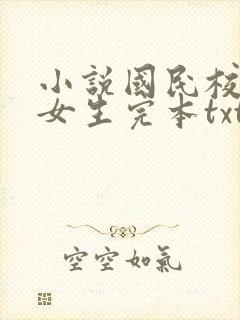 小說國民校
女生完本txt
空空如氣